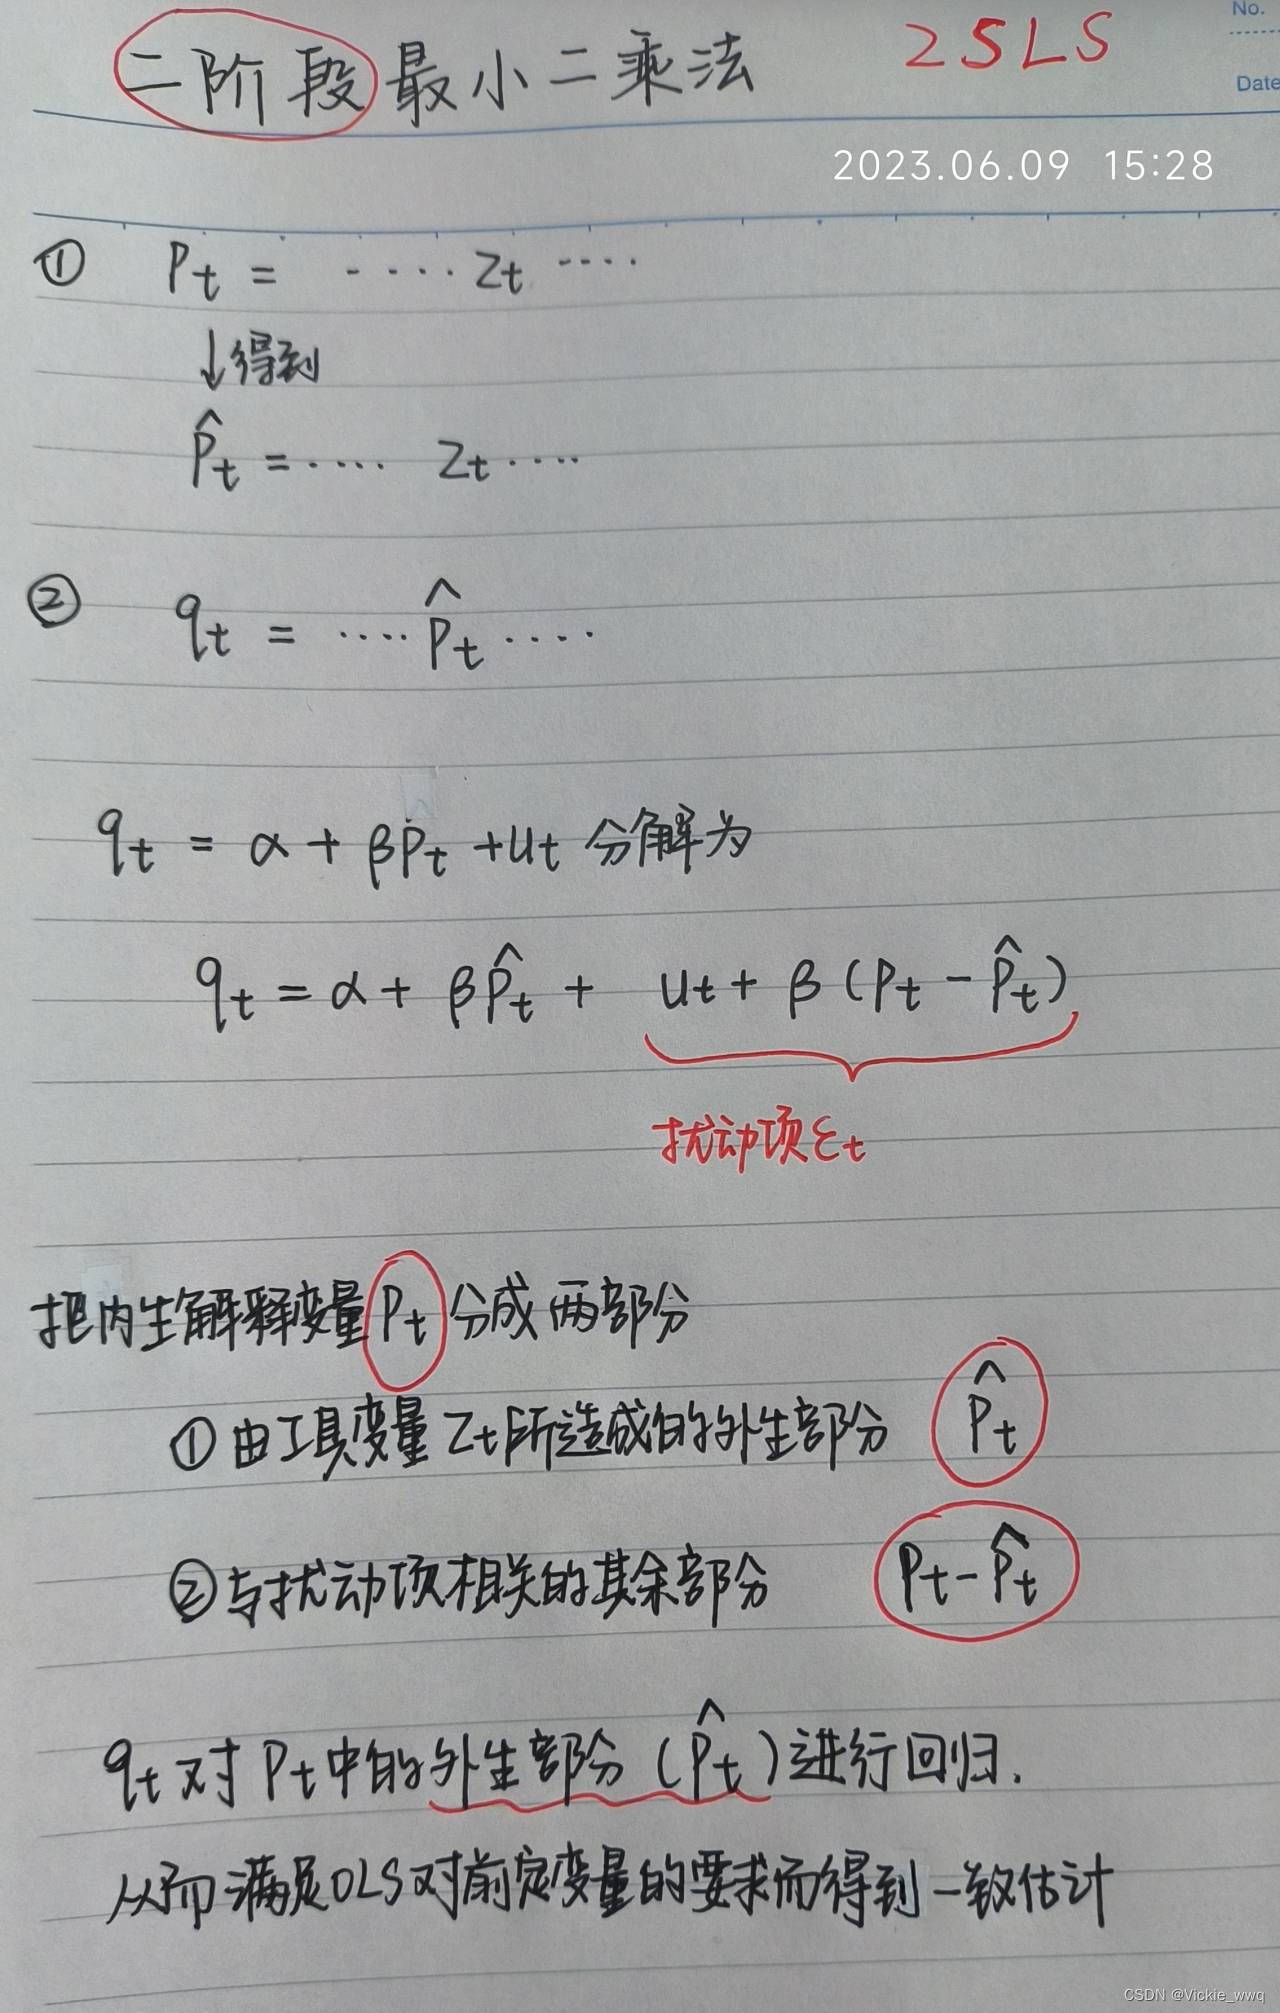 No.
二阶段最小二乘法 2SLS
Date
2023.06.09 15:28
① Pt = ····· Zt ····
↓得到
P̂t = ···· Zt ····
② qt = ···· P̂t ····
qt = α + βPt + ut 分解为
qt = α + βP̂t + ut + β (Pt - P̂t)
扰动项εt
把内生解释变量Pt分成两部分
①由工具变量Zt所造成的外生部分 P̂t
②与扰动项相关的其余部分 Pt - P̂t
qt对Pt中的外生部分(P̂t)进行回归.
从而满足OLS对前定变量的要求而得到一致估计
CSDN @Vickie_wwq